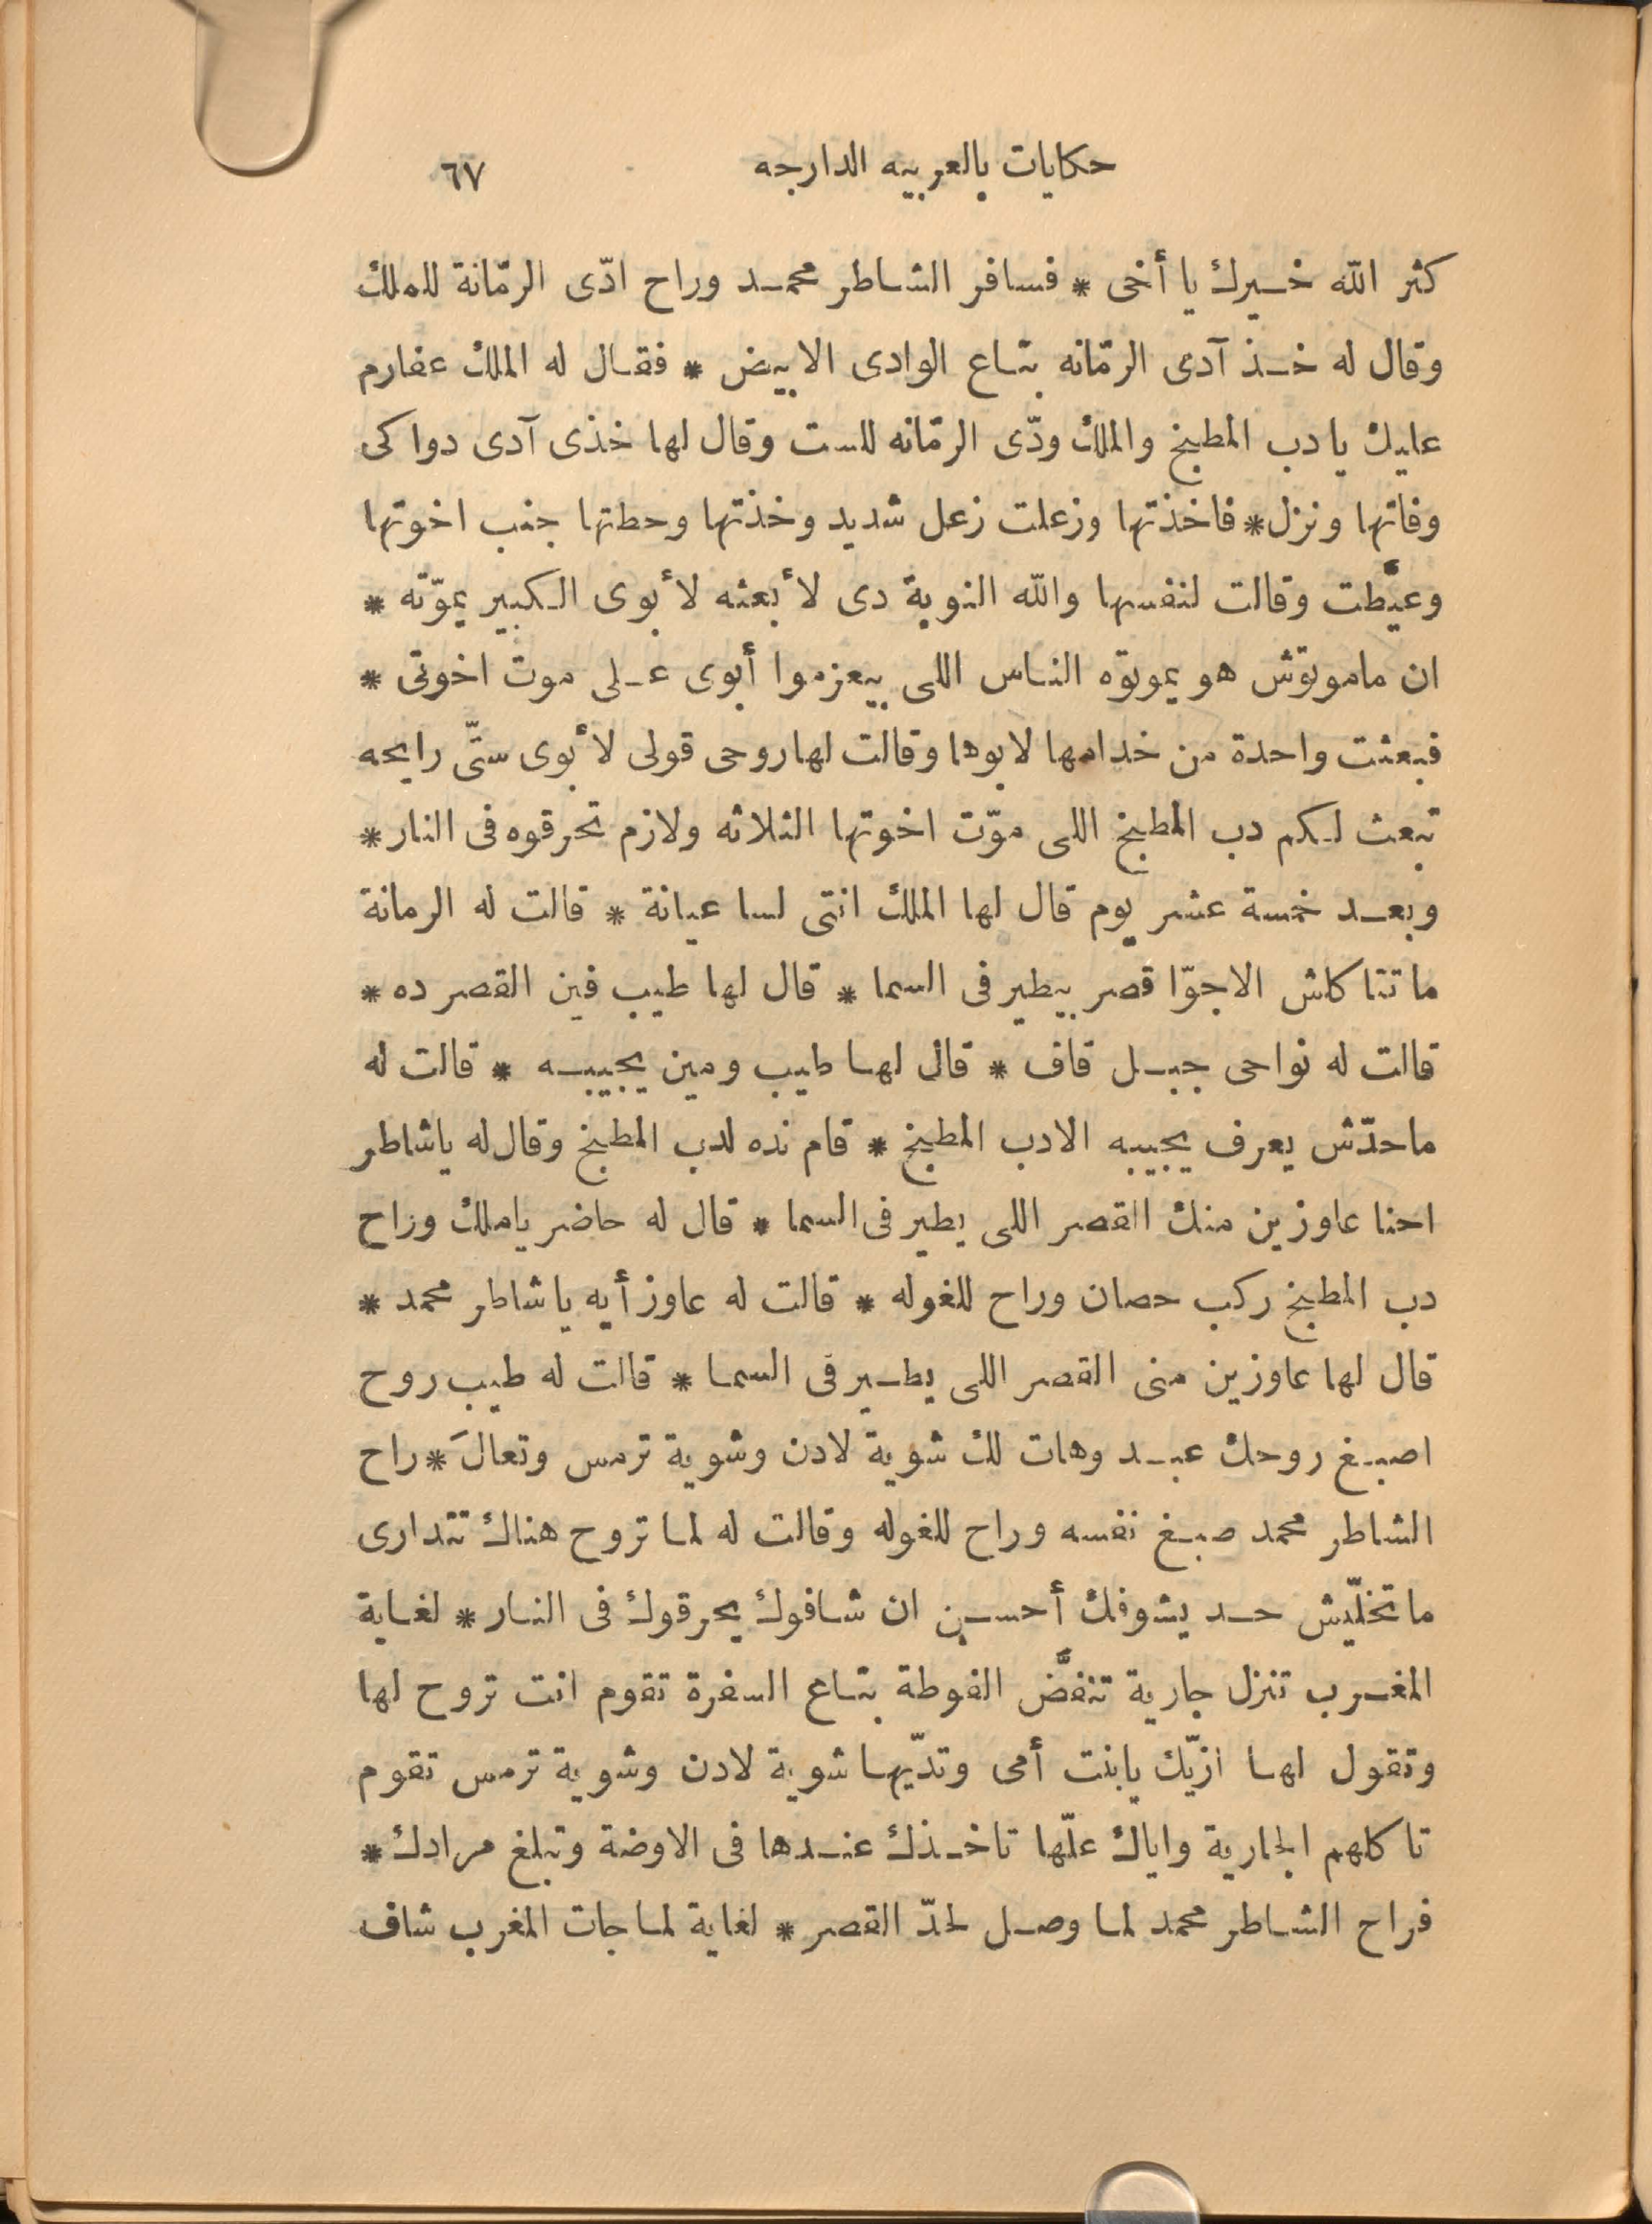 حكايات بالعربيه الدارجه ٦٧
كثر الله خيرك يا أخى * فسافر الشاطر محمد وراح ادّى الرمّانة للملك
وقال له خذ آدى الرمّانه بتاع الوادى الابيض * فقال له الملك عفارم
عليك يا دب المطبخ والملك ودّى الرمّانه للست وقال لها خذى آدى دواكى
وفاتها ونزل * فاخذتها وزعلت زعل شديد وخذتها وحطتها جنب اخوتها
وعيّطت وقالت لنفسها والله النوبة دى لأبعثه لأبوى الكبير يموّته *
ان ماموتوش هو يموتوه الناس اللى بيعزموا أبوى على موت اخوتى *
فبعثت واحدة من خدامها لابوها وقالت لها روحى قولى لأبوى ستّى رايحه
تبعث لكم دب المطبخ اللى موّت اخوتها الثلاثه ولازم تحرقوه فى النار *
وبعد خمسة عشر يوم قال لها الملك انتى لسا عيانة * قالت له الرمانة
ما تتاكلش الا جوّا قصر بيطير فى السما * قال لها طيب فين القصر ده *
قالت له نواحى جبل قاف * قال لها طيب ومين يجيبه * قالت له
ماحدّش يعرف يجيبه الادب المطبخ * قام نده لدب المطبخ وقال له ياشاطر
احنا عاوزين منك القصر اللى يطير فى السما * قال له حاضر ياملك وراح
دب المطبخ ركب حصان وراح للغوله * قالت له عاوز أيه يا شاطر محمد *
قال لها عاوزين منى القصر اللى يطير فى السما * قالت له طيب روح
اصبغ روحك عبد وهات لك شوية لادن وشوية ترمس وتعالَ * راح
الشاطر محمد صبغ نفسه وراح للغوله وقالت له لما تروح هناك تتدارى
ما تخلّيش حد يشوفك أحسن ان شافوك يحرقوك فى النار * لغاية
المغرب تنزل جارية تنفَّض الفوطة بتاع السفرة تقوم انت تروح لها
وتقول لها ازيّك يابنت أمى وتدّيها شوية لادن وشوية ترمس تقوم
تاكلهم الجارية واياك علّها تاخذك عندها فى الاوضة وتبلغ مرادك *
فراح الشاطر محمد لما وصل لحدّ القصر * لغاية لما جات المغرب شاف